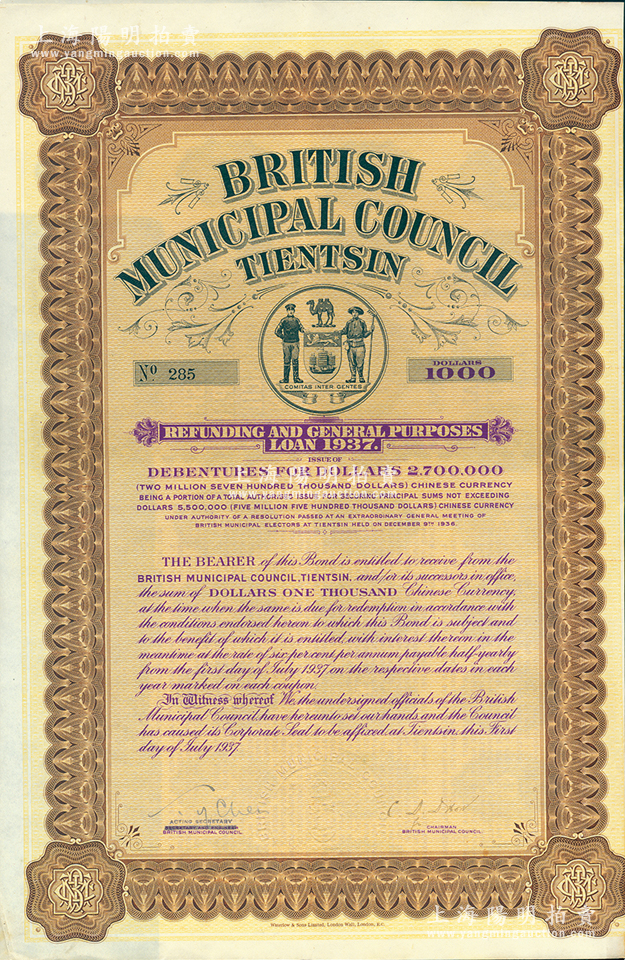 上海陽明拍賣
www.yangmingauction.com
BRITISH
MUNICIPAL COUNCIL
TIENTSIN
No 285
DOLLARS
1000
COMITAS INTER GENTES
REFUNDING AND GENERAL PURPOSES
LOAN 1937.
ISSUE OF
DEBENTURES FOR DOLLARS 2.700.000
(TWO MILLION SEVEN HUNDRED THOUSAND DOLLARS) CHINESE CURRENCY
BEING A PORTION OF A TOTAL AUTHORISED ISSUE FOR SECURING PRINCIPAL SUMS NOT EXCEEDING
DOLLARS 5,500,000 (FIVE MILLION FIVE HUNDRED THOUSAND DOLLARS) CHINESE CURRENCY
UNDER AUTHORITY OF A RESOLUTION PASSED AT AN EXTRAORDINARY GENERAL MEETING OF
BRITISH MUNICIPAL ELECTORS AT TIENTSIN HELD ON DECEMBER 9TH 1936.
THE BEARER of this Bond is entitled to receive from the
BRITISH MUNICIPAL COUNCIL, TIENTSIN, and/or its successors in office,
the sum of DOLLARS ONE THOUSAND Chinese Currency,
at the time when the same is due for redemption in accordance with
the conditions endorsed hereon to which this Bond is subject and
to the benefit of which it is entitled, with interest thereon in the
meantime at the rate of six per cent per annum payable half yearly
from the first day of July 1937 on the respective dates in each
year marked on each coupon.
In Witness whereof We, the undersigned officials of the British
Municipal Council, have hereunto set our hands and the Council
has caused its Corporate Seal to be affixed, at Tientsin, this First
day of July 1937
ACTING SECRETARY
BRITISH MUNICIPAL COUNCIL
CHAIRMAN
BRITISH MUNICIPAL COUNCIL.
Waterlow & Sons Limited, London Wall, London, E.C.
上海陽明拍賣
www.yangmingauction.com